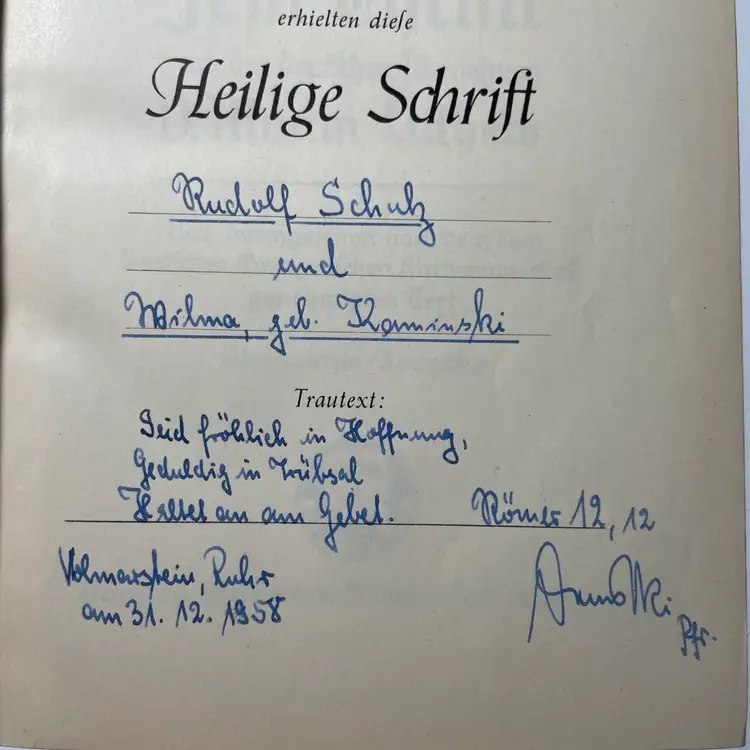 erhielten dieſe
Heilige Schrift
Rudolf Schulz
und
Wilma, geb. Kaminski
Trautext:
Seid fröhlich in Hoffnung,
Geduldig in Trübsal
Haltet an am Gebet. Römer 12, 12
Volmarstein, Ruhr
am 31. 12. 1958
Pfr.